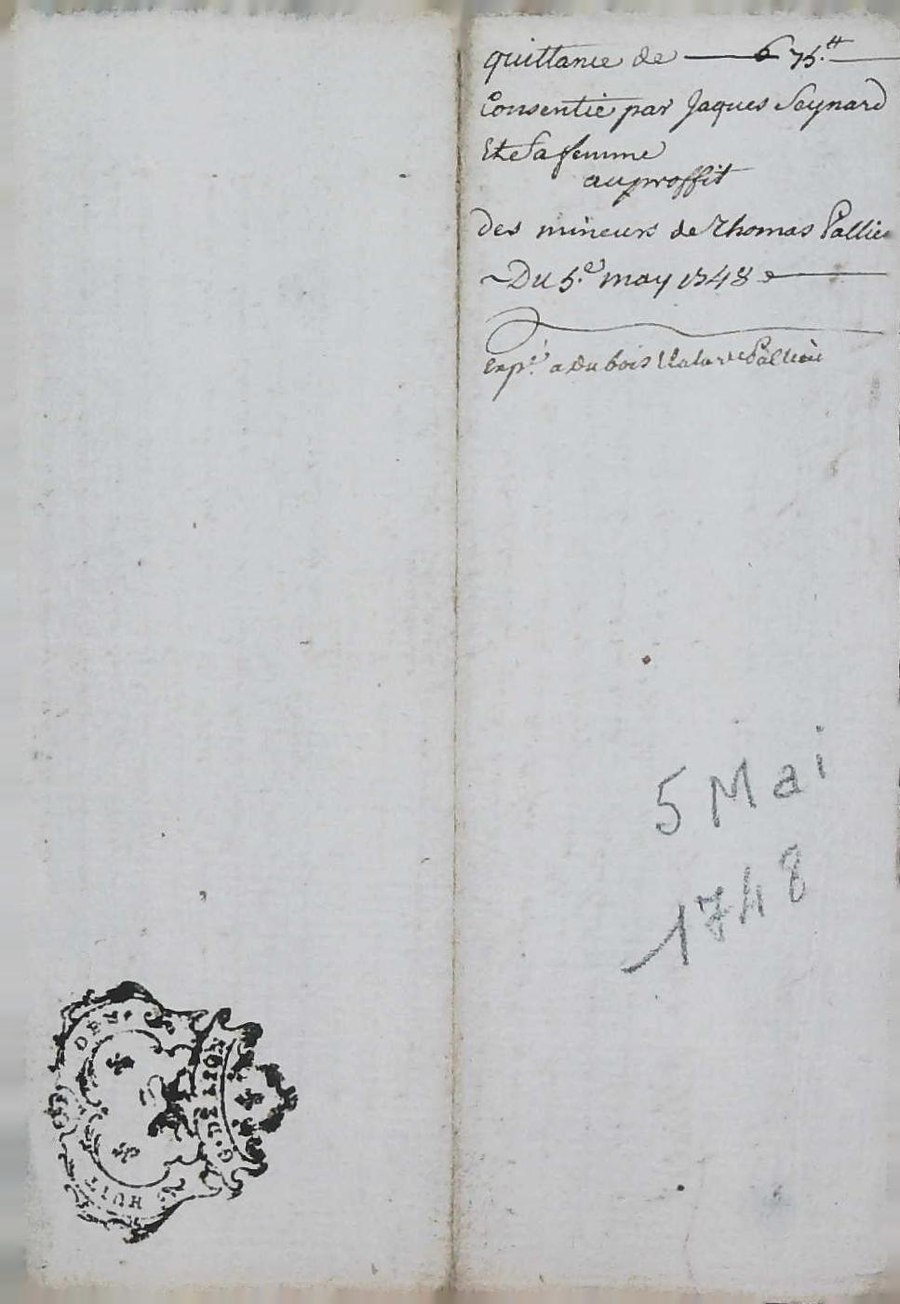 quittance de 675.tt
Consentie par Jaques Soynard
Et Sa femme
au proffit
des mineurs de Thomas Pallie
Du 5.e may 1748
exp.é a Du bois
5 Mai
1748
G. DE LYON
HUIT DEN.